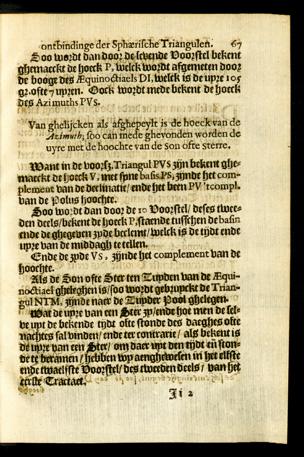 ontbindinge der Sphærische Triangulen. 67
Soo wordt dan door de sevende Voorstel bekent
ghemaeckt de hoeck P, welck wordt afgemeten door
de booge des Æquinoctiaels DI, welck is de uyre 105
gr. ofte 7 uyren. Oock wordt mede bekent de hoeck
des Azimuths PVS.
Van ghelijcken als afghepeylt is de hoeck van de
Azimuth, soo can mede ghevonden worden de
uyre met de hoochte van de Son ofte sterre.
Want in de voorsz. Triangul PVS zijn bekent ghe-
maeckt de hoeck V, met syne basis PS, zijnde het com-
plement van de declinatie/ ende het been PV 't compl.
van de Polus hoochte.
Soo wordt dan door de 10 Voorstel/ deses twee-
den deels/ bekent de hoeck P, staende tusschen de basin
ende de ghegeven zyde beclemt/ welck is de tijdt ende
uyre van de middagh te tellen.
Ende de zyde VS, zijnde het complement van de
hoochte.
Als de Son ofte Ster ten Tuyden van de Æqui-
noctiael gheleghen is/ soo wordt gebruyckt de Trian-
gul NTM, zijnde naer de Zuyder Pool ghelegen.
Wat de uyre van een Ster zy/ ende hoe men de sel-
ve upt de bekende tijdt ofte stonde des daeghs ofte
nachtes sal vinden/ ende ter contrarie/ als bekent is
de uyre van een Ster/ om daer upt den tijdt eñ ston-
de te beramen/ hebben wy aenghewesen in het elfste
ende twaelfste Voorstel/ des tweeden deels/ van het
eerste Tractaet.
Ii 2